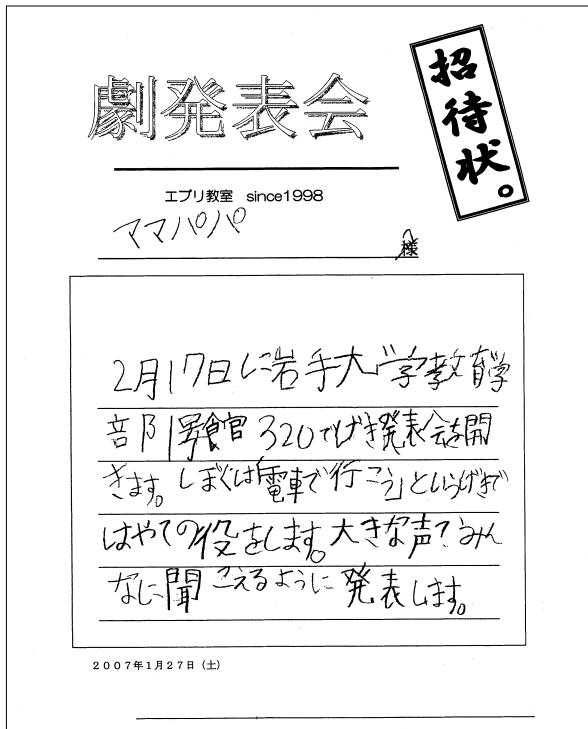 劇発表会
招待状。
エブリ教室 since1998
ママパパ
様
2月17日に岩手大学教育学
部1号館320でげき発表会を開
きます。しぼくは「電車で行こう」というげきで
はやての役をします。大きな声でみん
なに聞こえるように発表します。
2007年1月27日(土)